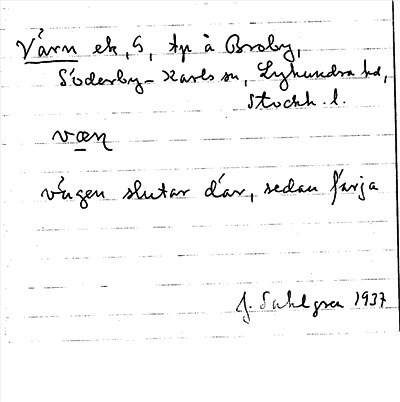 Värn ek, S, tp å Broby,
Söderby-Karls sn, Lyhundra hd,
Stockh. l.
væṇ
vägen slutar där, sedan färja
J. Sahlgren 1937